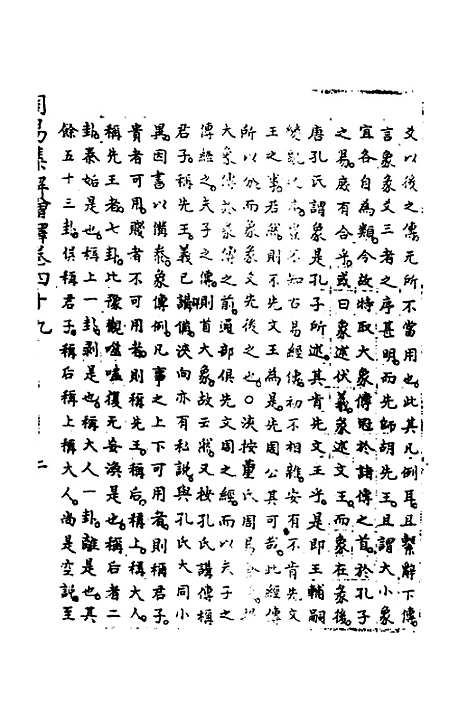 爻以後之傳元所不當用也此其凡例耳且繫辭下傳
言彖象爻三者之序甚明而先師胡先王且謂大小象
宜各自為類今故特取大象傳冠於諸傳之首於孔子
之易庶有合乎或曰彖述伏羲彖述文王而象在彖後
唐孔氏謂象是孔子所述其肯先文王乎是即王輔嗣
不知古易經傳初不相雜安有不肯先文
王之若然則不先文王為是先周公其可哉此經傳
所以分而象彖文先後之也〇淡按董氏周易
大象傳彖傳之前通部俱先文周之經而以夫子之
傳經之夫子之傳則首大象故云爾又按孔氏講傳稱
君子稱先王義已講備淡向亦有私說與孔氏大同小
異因書以備叅象傳例凡事之上下可用者則稱君子
貴者可用賤者不可用者則稱先王稱后稱上稱大人
稱先王者七卦比豫觀噬嗑復无妄渙是也稱后者二
卦泰姤是也稱上一卦剥是也稱大人一卦離是也其
餘五十三卦俱稱君子稱后稱上稱大人尚是空說至
周易集解會釋卷四十九
二